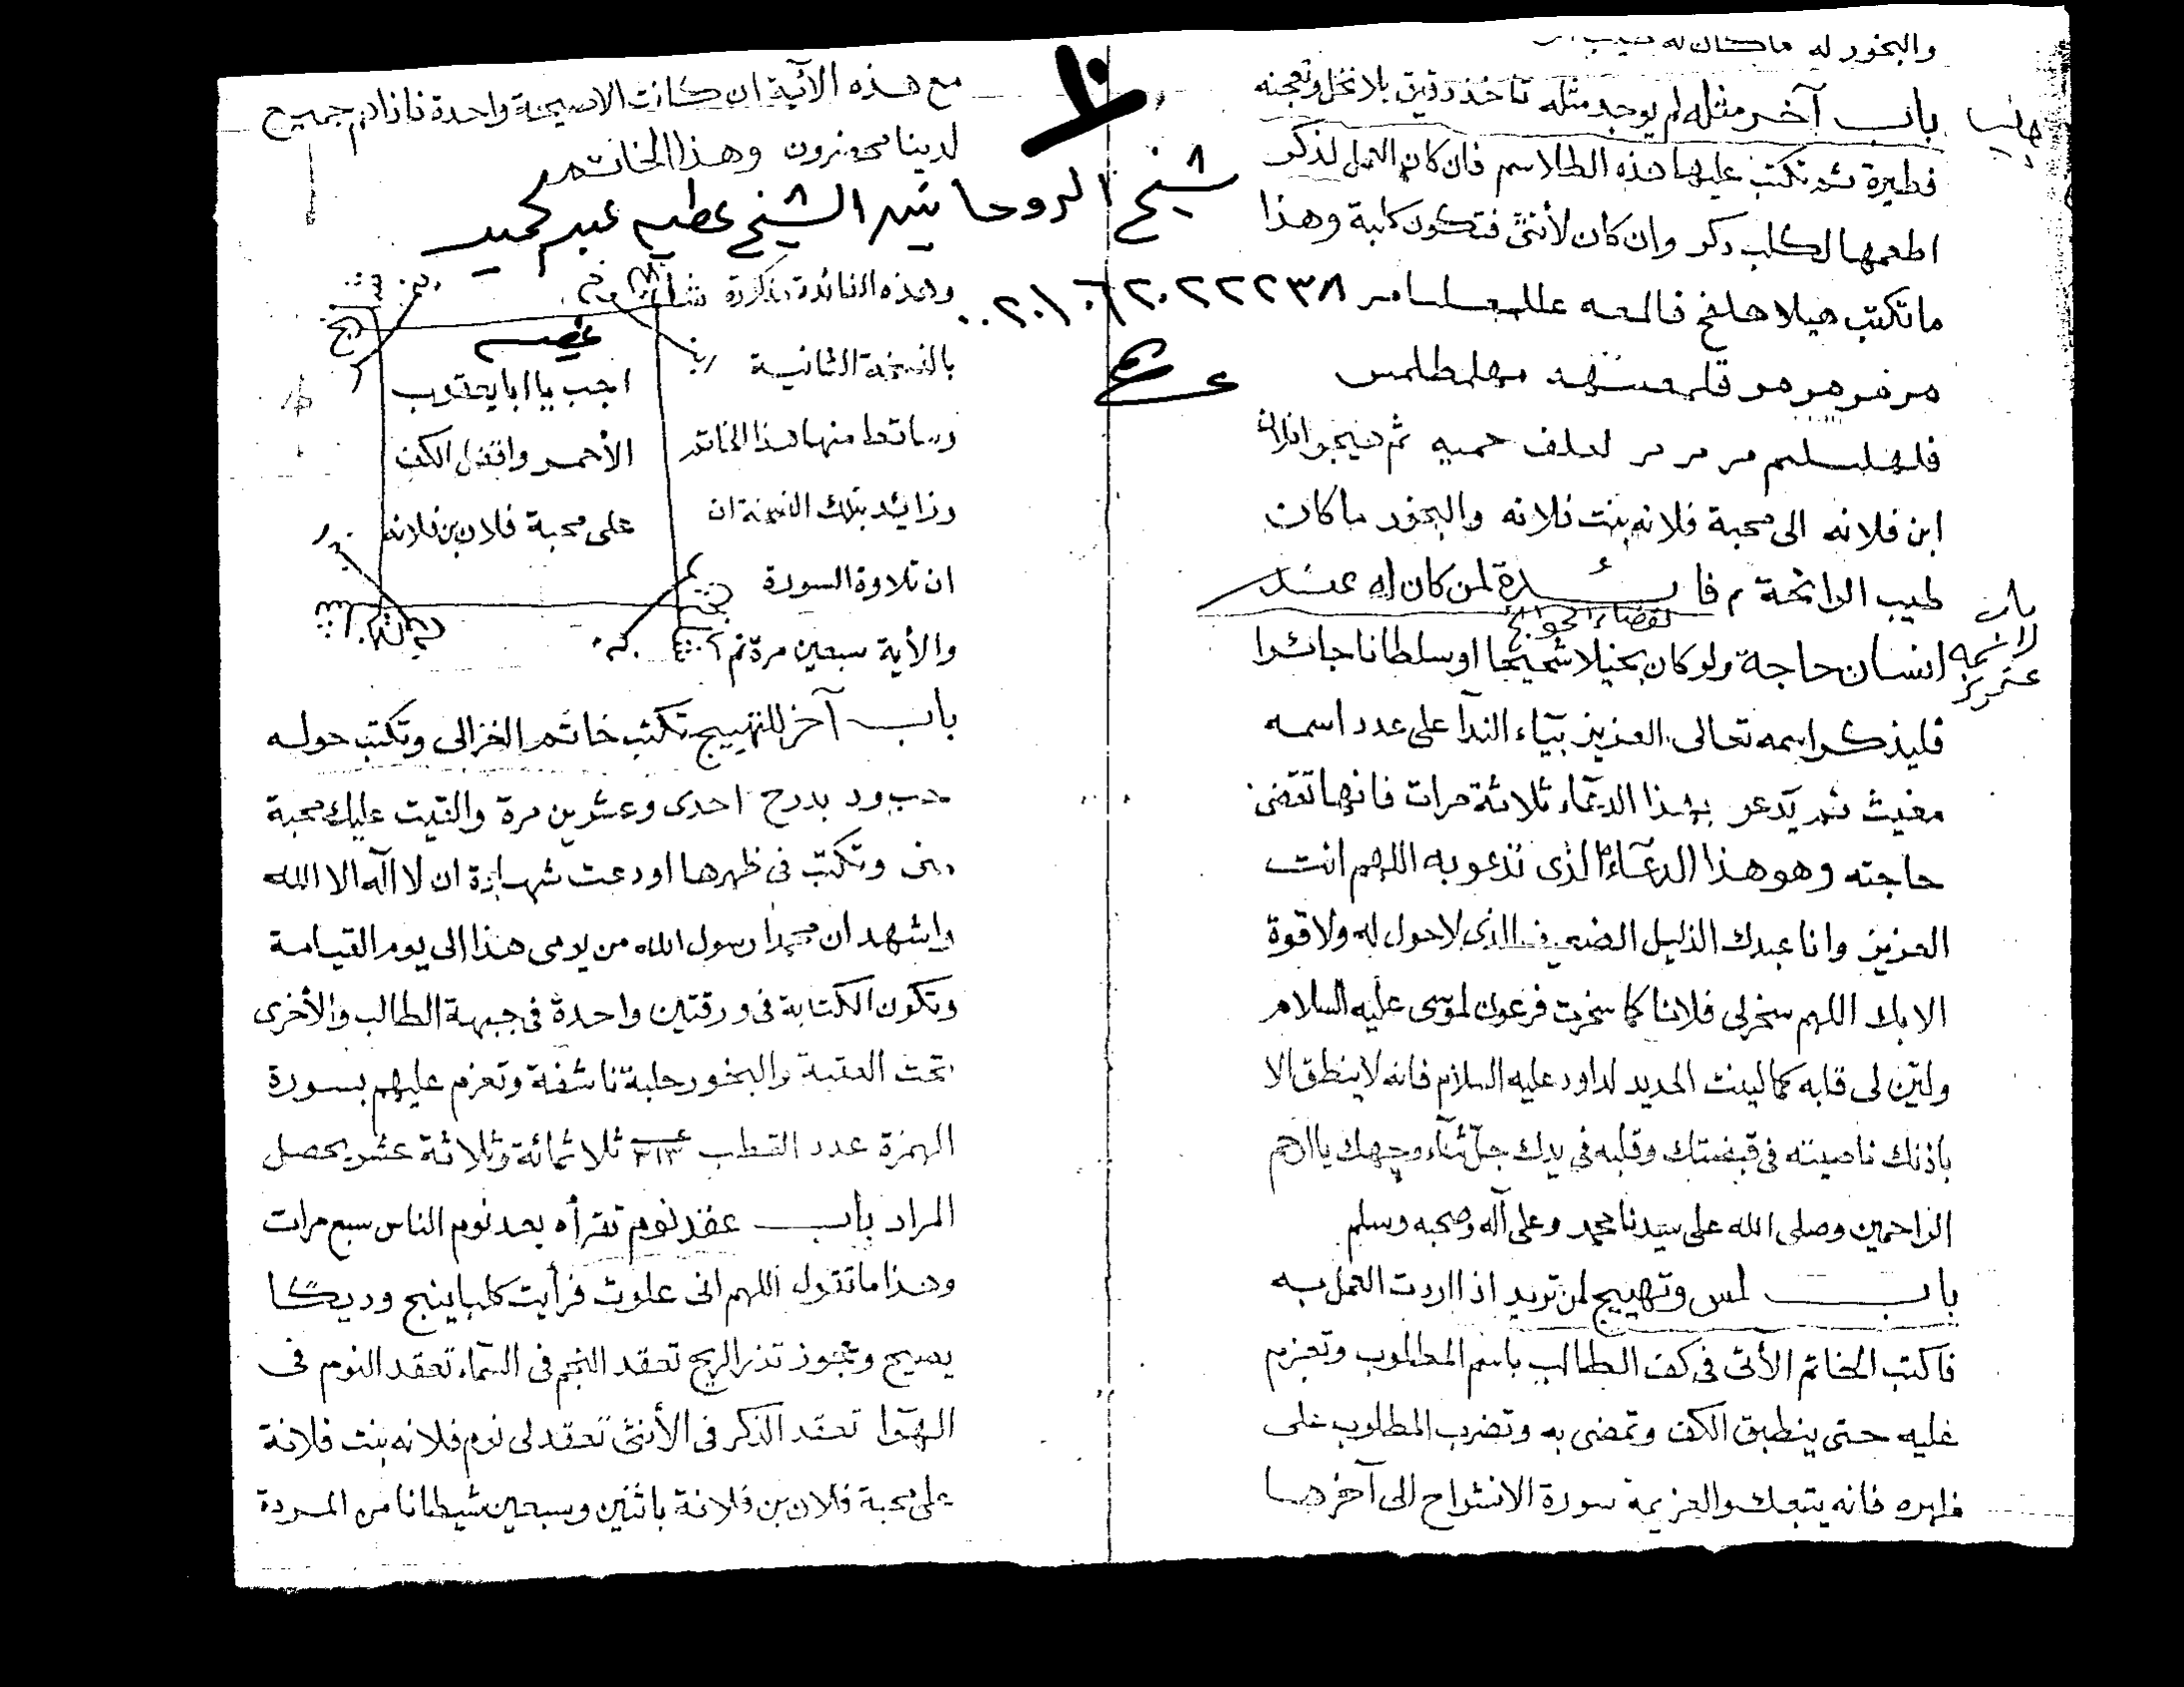 والبخور له ما كان له
باب آخر مثله لم يوجد مثله تاخذ دقيق بلا نخل وتعجنه
فطيرة ثم تكتب عليها هذه الطلاسم فان كان العمل لذكر
اطعمها لكلب ذكر وان كان لأنثى فتكون كلبة وهذا
ما تكتب هيلا هلفخ
مر مر هو هو
ثم
ابن فلانه الى محبة فلانه بنت فلانه والبخور ما كان
طيب الرائحة م فائدة لمن كان له عند
لقضاء الحوائج
انسان حاجة ولو كان بخيلا شحيحا او سلطانا جائرا
فليذكر اسمه تعالى العزيز بيآء الندآ على عدد اسمه
مغيث ثم يدعو بهذا الدعاء ثلاثة مرات فانها تقضى
حاجته وهو هذا الدعآء الذى تدعو به اللهم انت
العزيز وانا عبدك الذليل الضعيف الذى لا حول له ولا قوة
الا بك اللهم سخر لى فلانا كما سخرت فرعون لموسى عليه السلام
ولين لى قلبه كما لينت الحديد لداود عليه السلام فانه لا ينطق الا
باذنك ناصيته فى قبضتك وقلبه فى يدك جل ثنآء وجهك يا ارحم
الراحمين وصلى الله على سيدنا محمد وعلى آله وصحبه وسلم
باب لمس وتهييج لمن تريد اذا اردت العمل به
فاكتب الخاتم الأتى فى كف الطالب باسم المطلوب وتعزم
عليه حتى ينطبق الكف وتمضى به وتضرب المطلوب على
ظهره فانه يتبعك والعزيمة سورة الانشراح الى آخرها
شيخ الروحانيين الشيخ عطيه عبد الحميد
٠٠٢٠١٠٦٢٠٢٢٢٣٨
مع هذه الآية ان كانت الا صيحة واحدة فاذاهم جميع
لدينا محضرون وهذا الخاتم
وهذه الفائدة مذكورة
بالنسخة الثانية
وساقط منها هذا الخاتم
وزائد بتلك النسخة ان
ان تلاوة السورة
والأية سبعين مرة تم
عطيه
اجب يا ابا يعقوب
الأحمر واقفل الكف
على محبة فلان بن فلانه
باب آخر للتهييج تكتب خاتم الغزالى وتكتب حوله
بدوح احدى وعشرين مرة والقيت عليك محبة
منى وتكتب فى ظهرها اودعت شهادة ان لا اله الا الله
واشهد ان محمدا رسول الله من يومى هذا الى يوم القيامة
وتكون الكتابة فى ورقتين واحدة فى جبهة الطالب والأخرى
تحت العتبة والبخور حلبة ناشفة وتعزم عليهم بسورة
الهمزة عدد القطب ٣١٣ ثلاثمائة وثلاثة عشر يحصل
المراد باب عقد نوم تقرأه بعد نوم الناس سبع مرات
وهذا ما تقول اللهم انى علوت فرأيت كلبا ينبح وديكا
يصيح وعجوز تذر الريح تعقد النجم فى السمآء تعقد النوم فى
الهوآ تعقد الذكر فى الأنثى تعقد لى نوم فلانه بنت فلانة
على محبة فلان بن فلانة باثنين وسبعين شيطانا من المردة